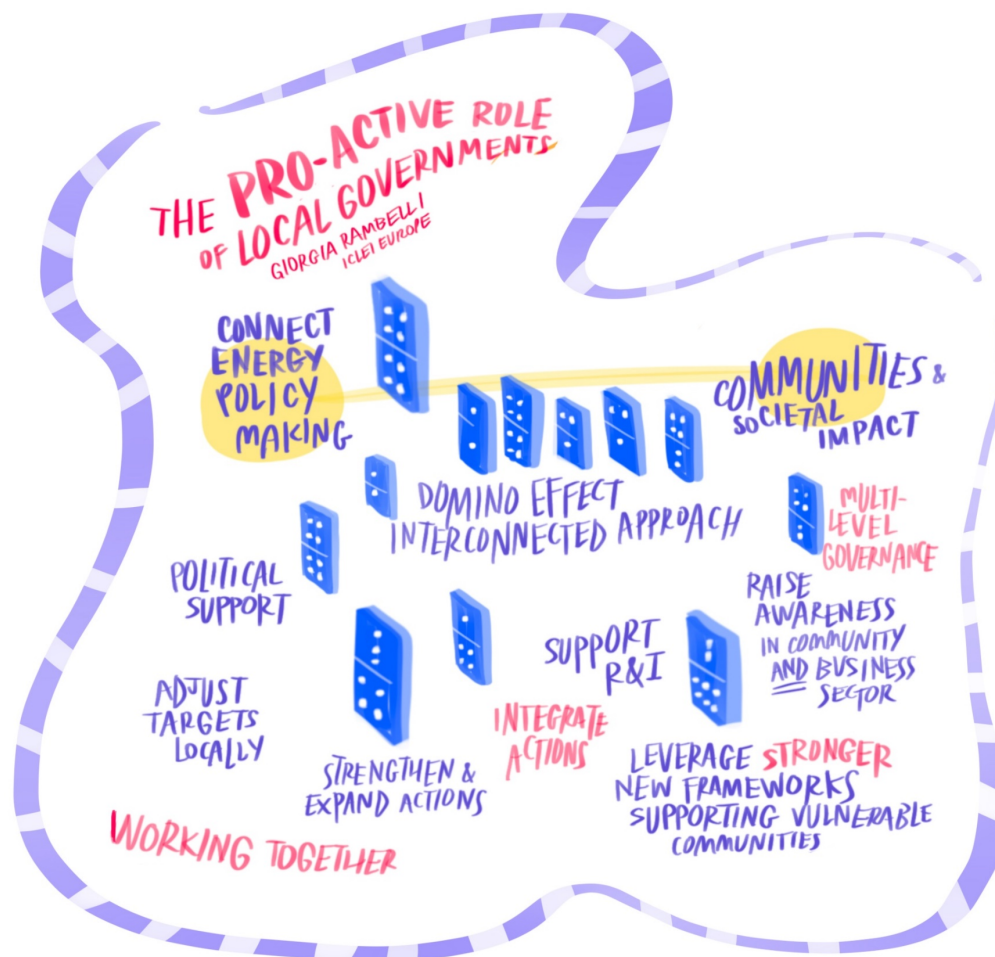 THE PRO-ACTIVE ROLE
OF LOCAL GOVERNMENTS
GIORGIA RAMBELLI
ICLEI EUROPE
CONNECT
ENERGY
POLICY
MAKING
COMMUNITIES &
SOCIETAL
IMPACT
DOMINO EFFECT
INTERCONNECTED APPROACH
MULTI-
LEVEL
GOVERNANCE
POLITICAL
SUPPORT
RAISE
AWARENESS
IN COMMUNITY
AND BUSINESS
SECTOR
SUPPORT
R&I
ADJUST
TARGETS
LOCALLY
INTEGRATE
ACTIONS
STRENGTHEN &
EXPAND ACTIONS
LEVERAGE STRONGER
NEW FRAMEWORKS
SUPPORTING VULNERABLE
COMMUNITIES
WORKING TOGETHER